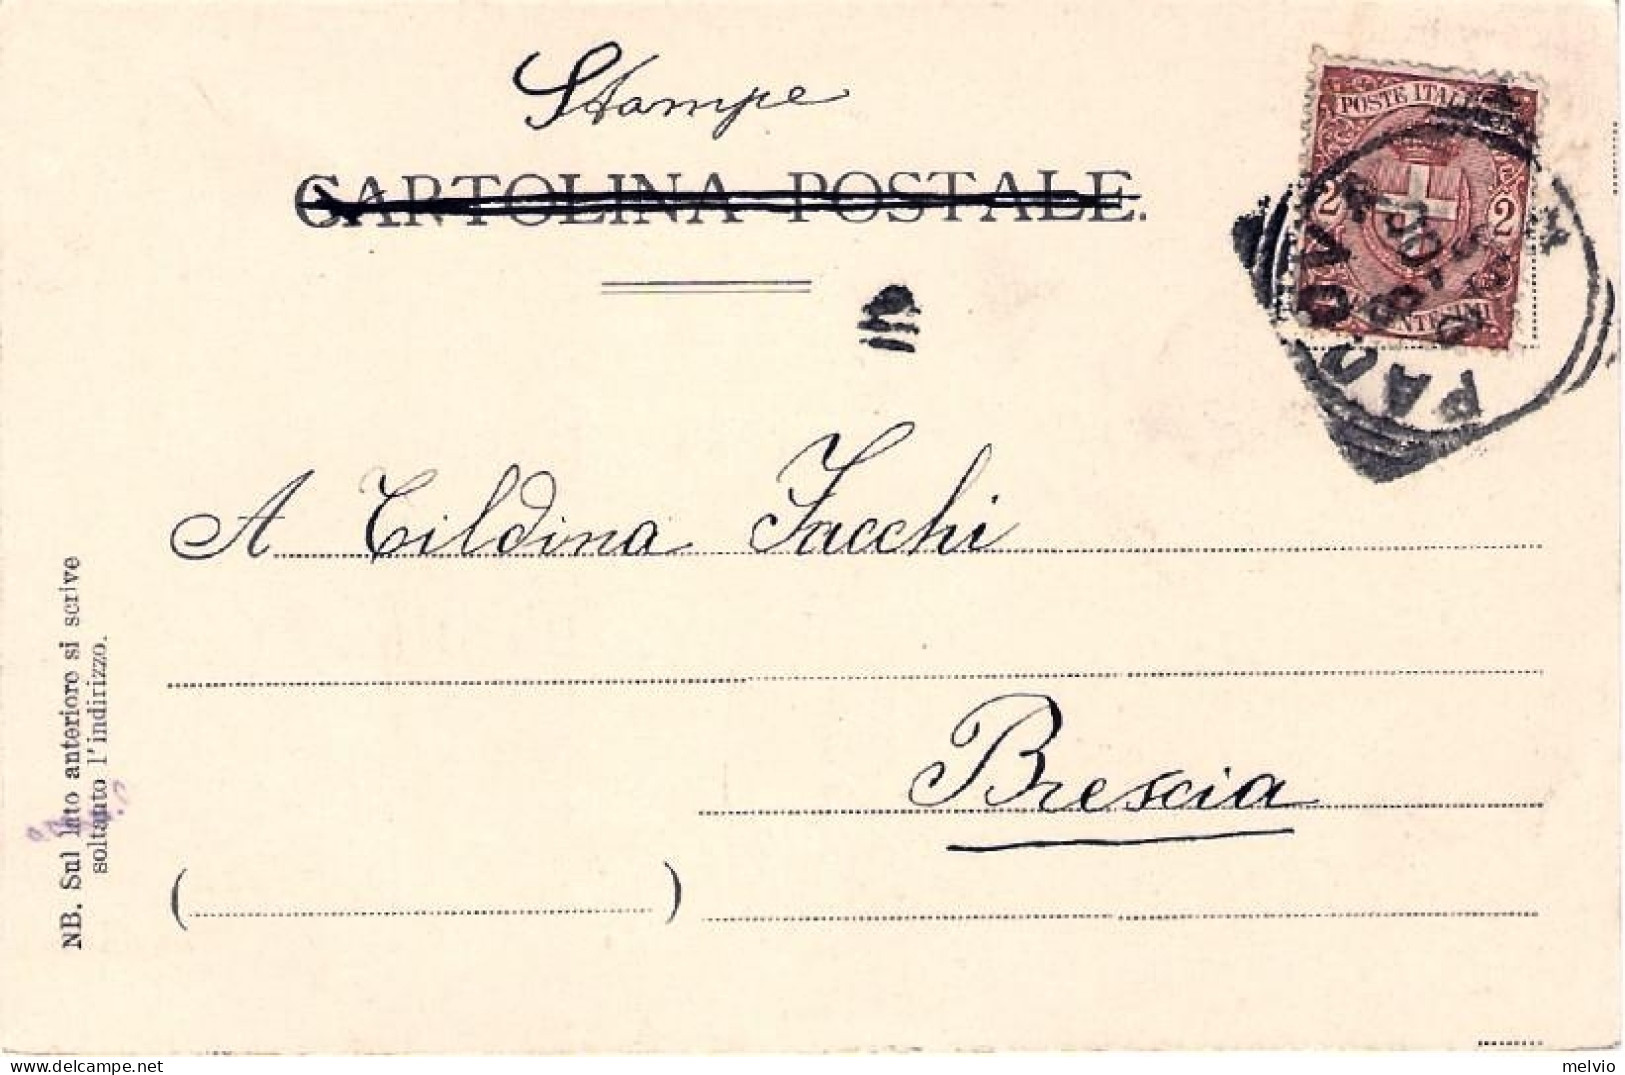 Stampe
CARTOLINA POSTALE.
POSTE ITAL
2 2
NTESIMI
PADOVA
A Tildina Sacchi
Brescia
( )
NB. Sul lato anteriore si scrive
soltanto l'indirizzo.
melvio